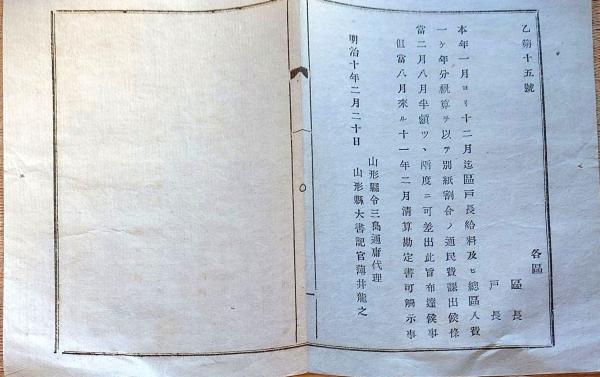 乙第十五號
各區
區長
戸長
本年一月ヨリ十二月迄區戸長給料及ヒ總區入費
一ケ年分概算ヲ以テ別紙割合ノ通民費課出候條
當二月八月半額ツヽ兩度ニ可差出此旨布達候事
但當八月來ル十一年二月清算勘定書可觸示事
明治十年二月二十日
山形縣令三島通庸代理
山形縣大書記官薄井龍之